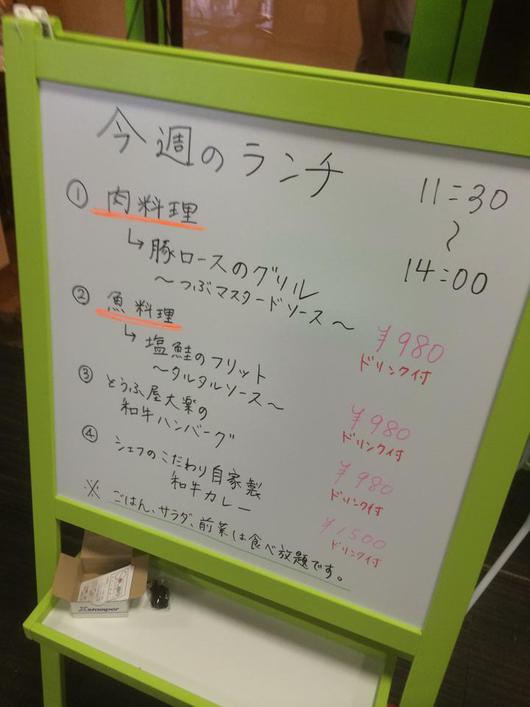 今週のランチ
11:30
〜
14:00
① 肉料理
↳ 豚ロースのグリル
〜つぶマスタードソース〜
¥980
ドリンク付
② 魚料理
↳ 塩鮭のフリット
〜タルタルソース〜
¥980
ドリンク付
③ とうふ屋大楽の
和牛ハンバーグ
¥980
ドリンク付
④ シェフのこだわり自家製
和牛カレー
¥1,500
ドリンク付
※ ごはん、サラダ、前菜は食べ放題です。
Xstamper